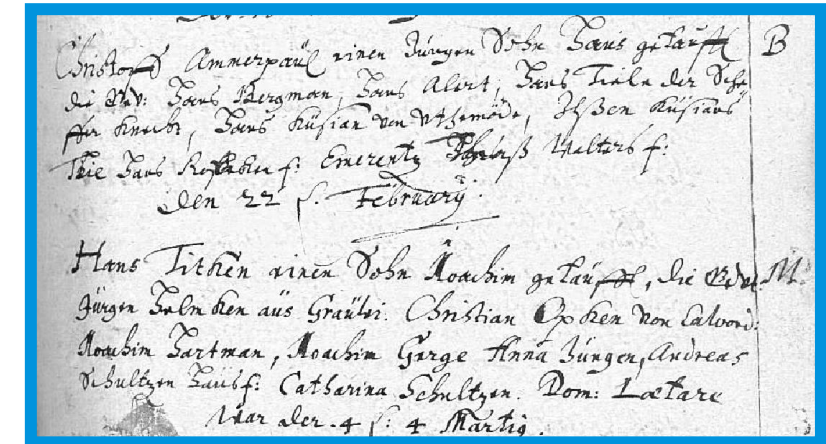 Christoff Ammerpaul einen Jungen Sohn Hans getaufft B
die Gev: Hans Bergman, Hans Alert, Hans Tiele der Sche
ffer Knecht, Hans Kusian von Uthemöde, Kusians
Hans f: Emerentz Walters f:
den 22 f. Februarij.
Hans Titken einen Sohn Joachim getaufft, die Gev: M.
Jürgen Helmken aus Grautei. Christian Opken von Calvord:
Joachim Hartman, Joachim Gerge Anna Jungen, Andreas
Schultzen Hausf: Catharina Schultzen. Dom: Lætare
War der 4 f: 4 Martij.